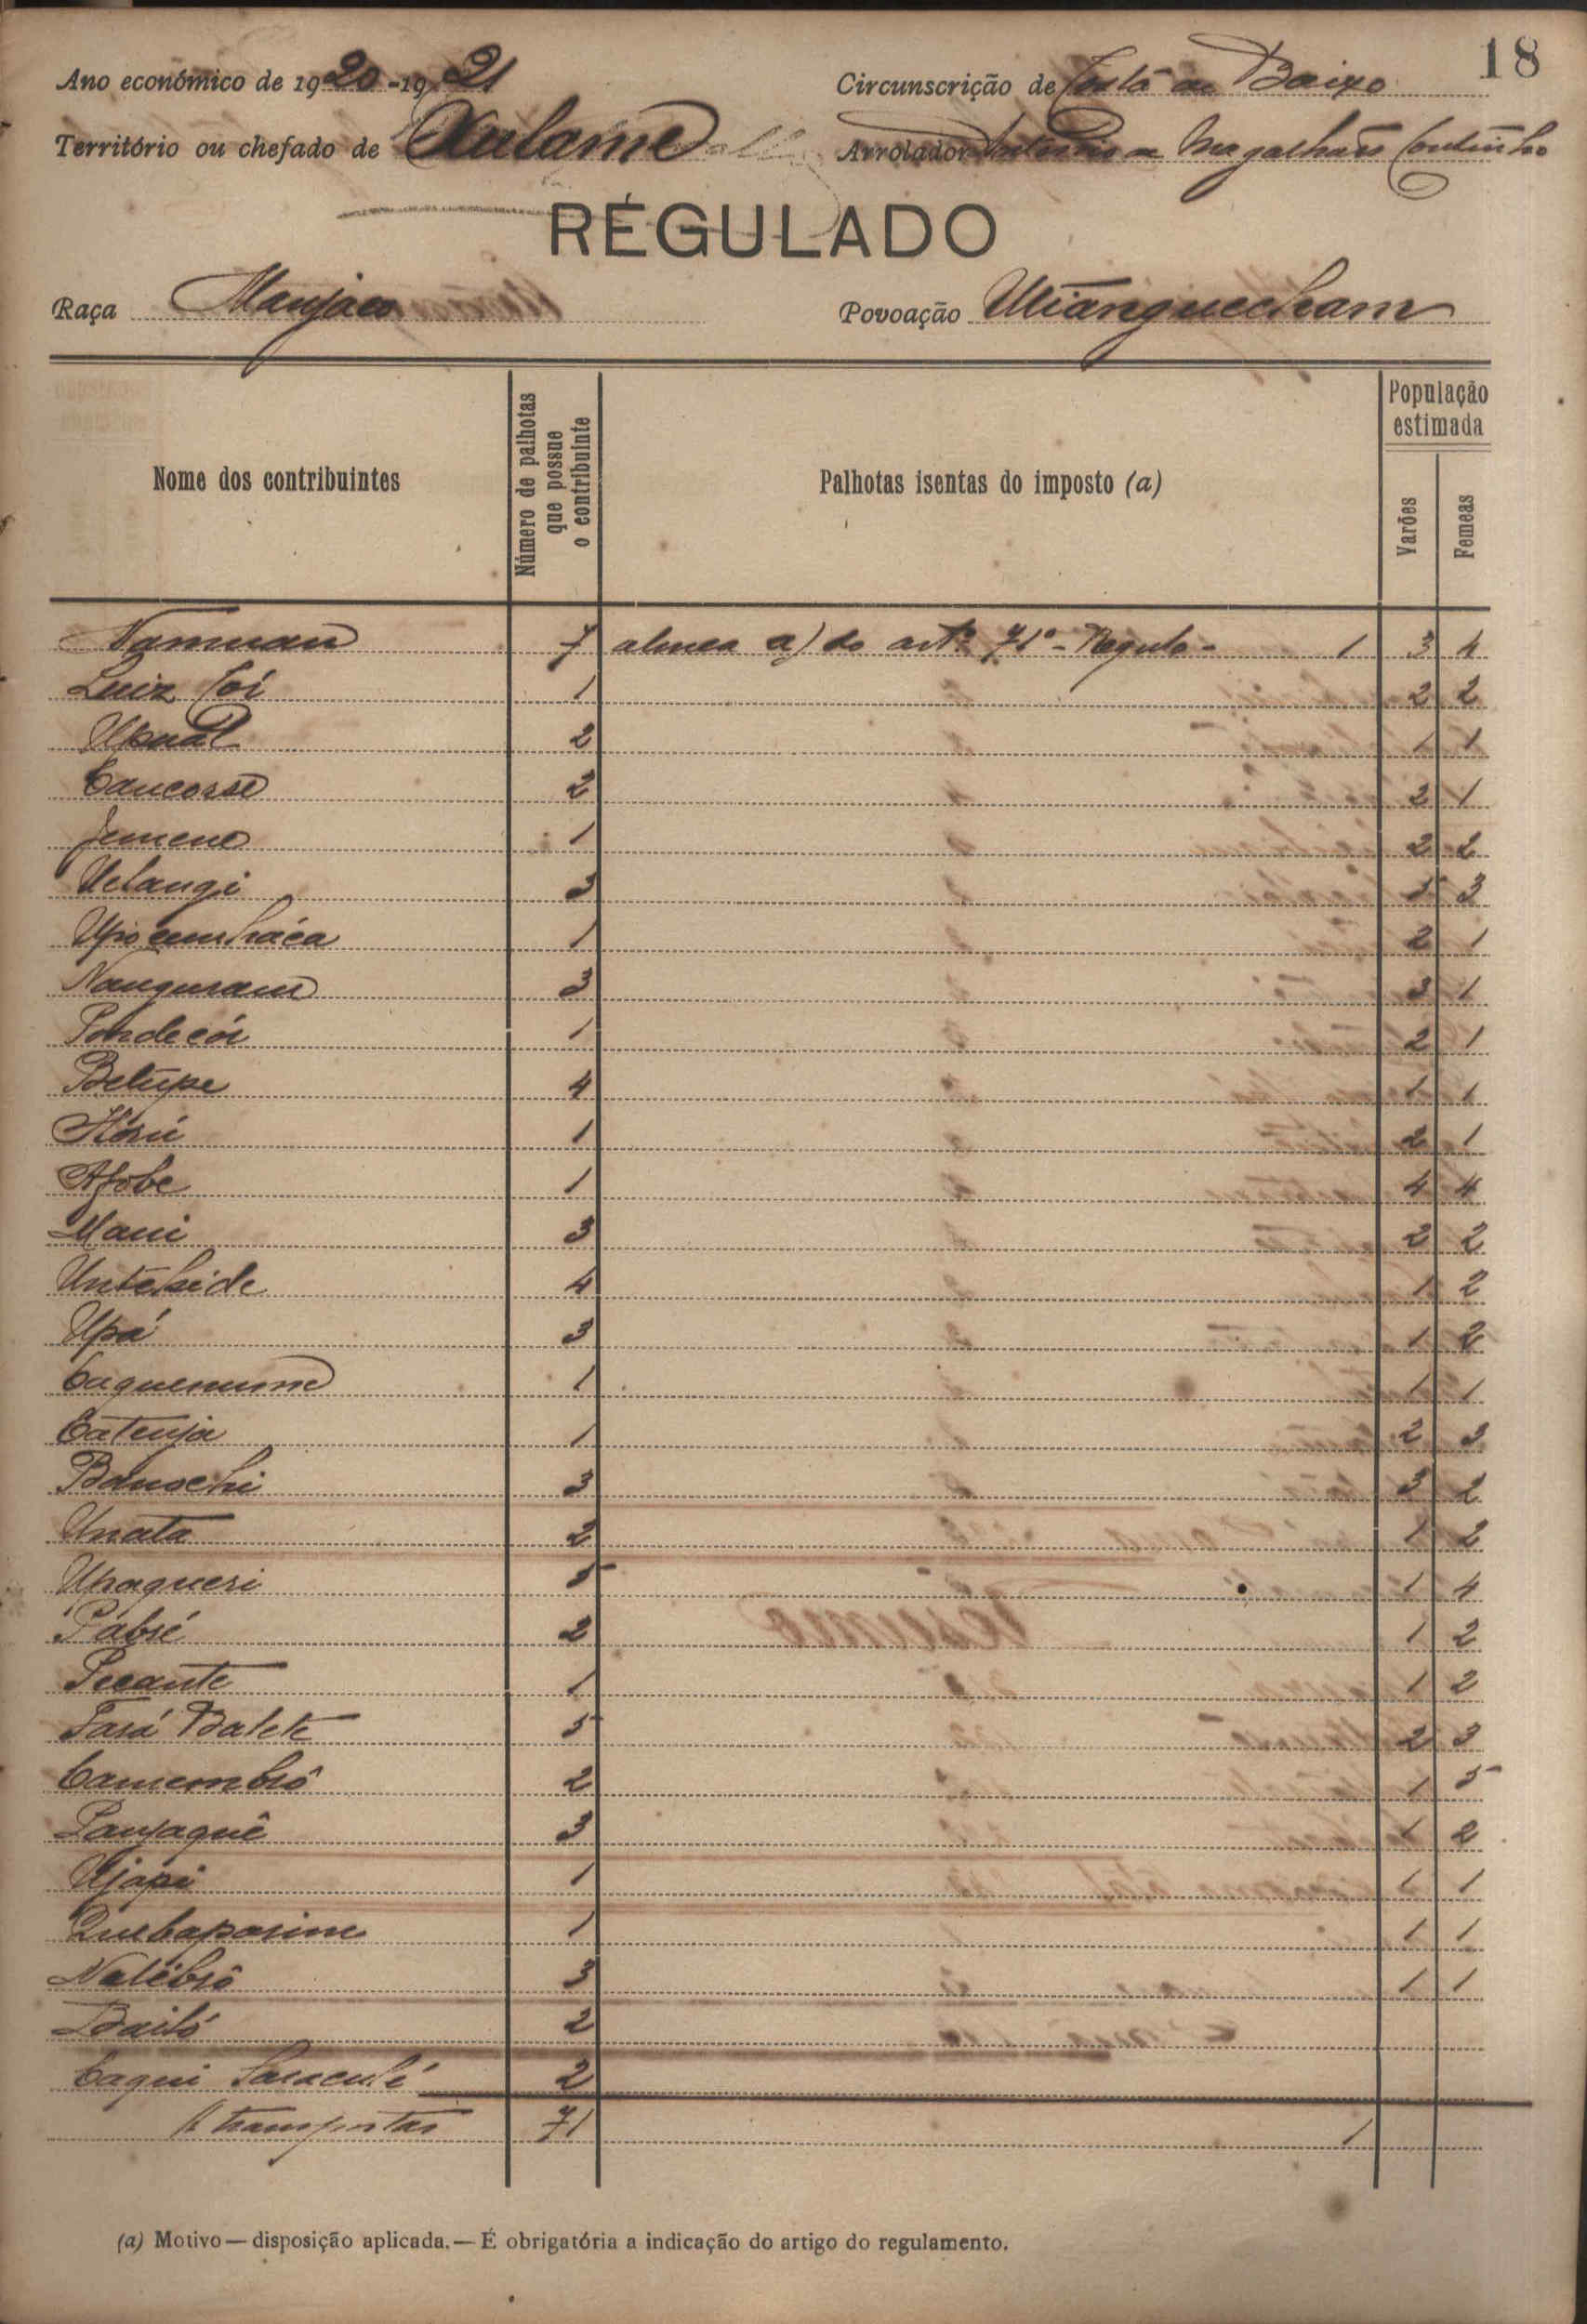 18
Ano económico de 1920-1921 Circunscrição de Costa de Baixo
Território ou chefado de Xulame Arrolador Magalhães Coutinho
REGULADO
Raça Manjaco Povoação Utianguecham
Nome dos contribuintes Número de palhotas que possue o contribuinte Palhotas isentas do imposto (a) População estimada Varões Femeas
Namuan 7 alinea a) do artº 71º - Regulo - 1 3 4
Luiz Coi 1 2 2
Upaal 2 1 1
Cancosse 2 2 1
Jemene 1 2 2
Uelangi 3 1 3
1 2 1
Nanguram 3 3 1
Pondecói 1 2 1
Betupe 4 1 1
1 2 1
Afobe 1 4 4
Mani 3 2 2
Untehide 4 1 2
Upá 3 1 2
Caquemume 1 1 1
Catenja 1 2 3
Banochi 3 3 2
Unata 2 1 2
Uhagueri 5 1 4
Pabsé 2 1 2
Pecante 1 1 2
Tará Balete 5 2 3
Camembrô 2 1 5
Panjaquê 3 1 2
Ujapi 1 1 1
Quebaparime 1 1 1
Natebrô 3 1 1
Bailó 2
Caqui 2
A transportar 71 1
(a) Motivo — disposição aplicada. — É obrigatória a indicação do artigo do regulamento.